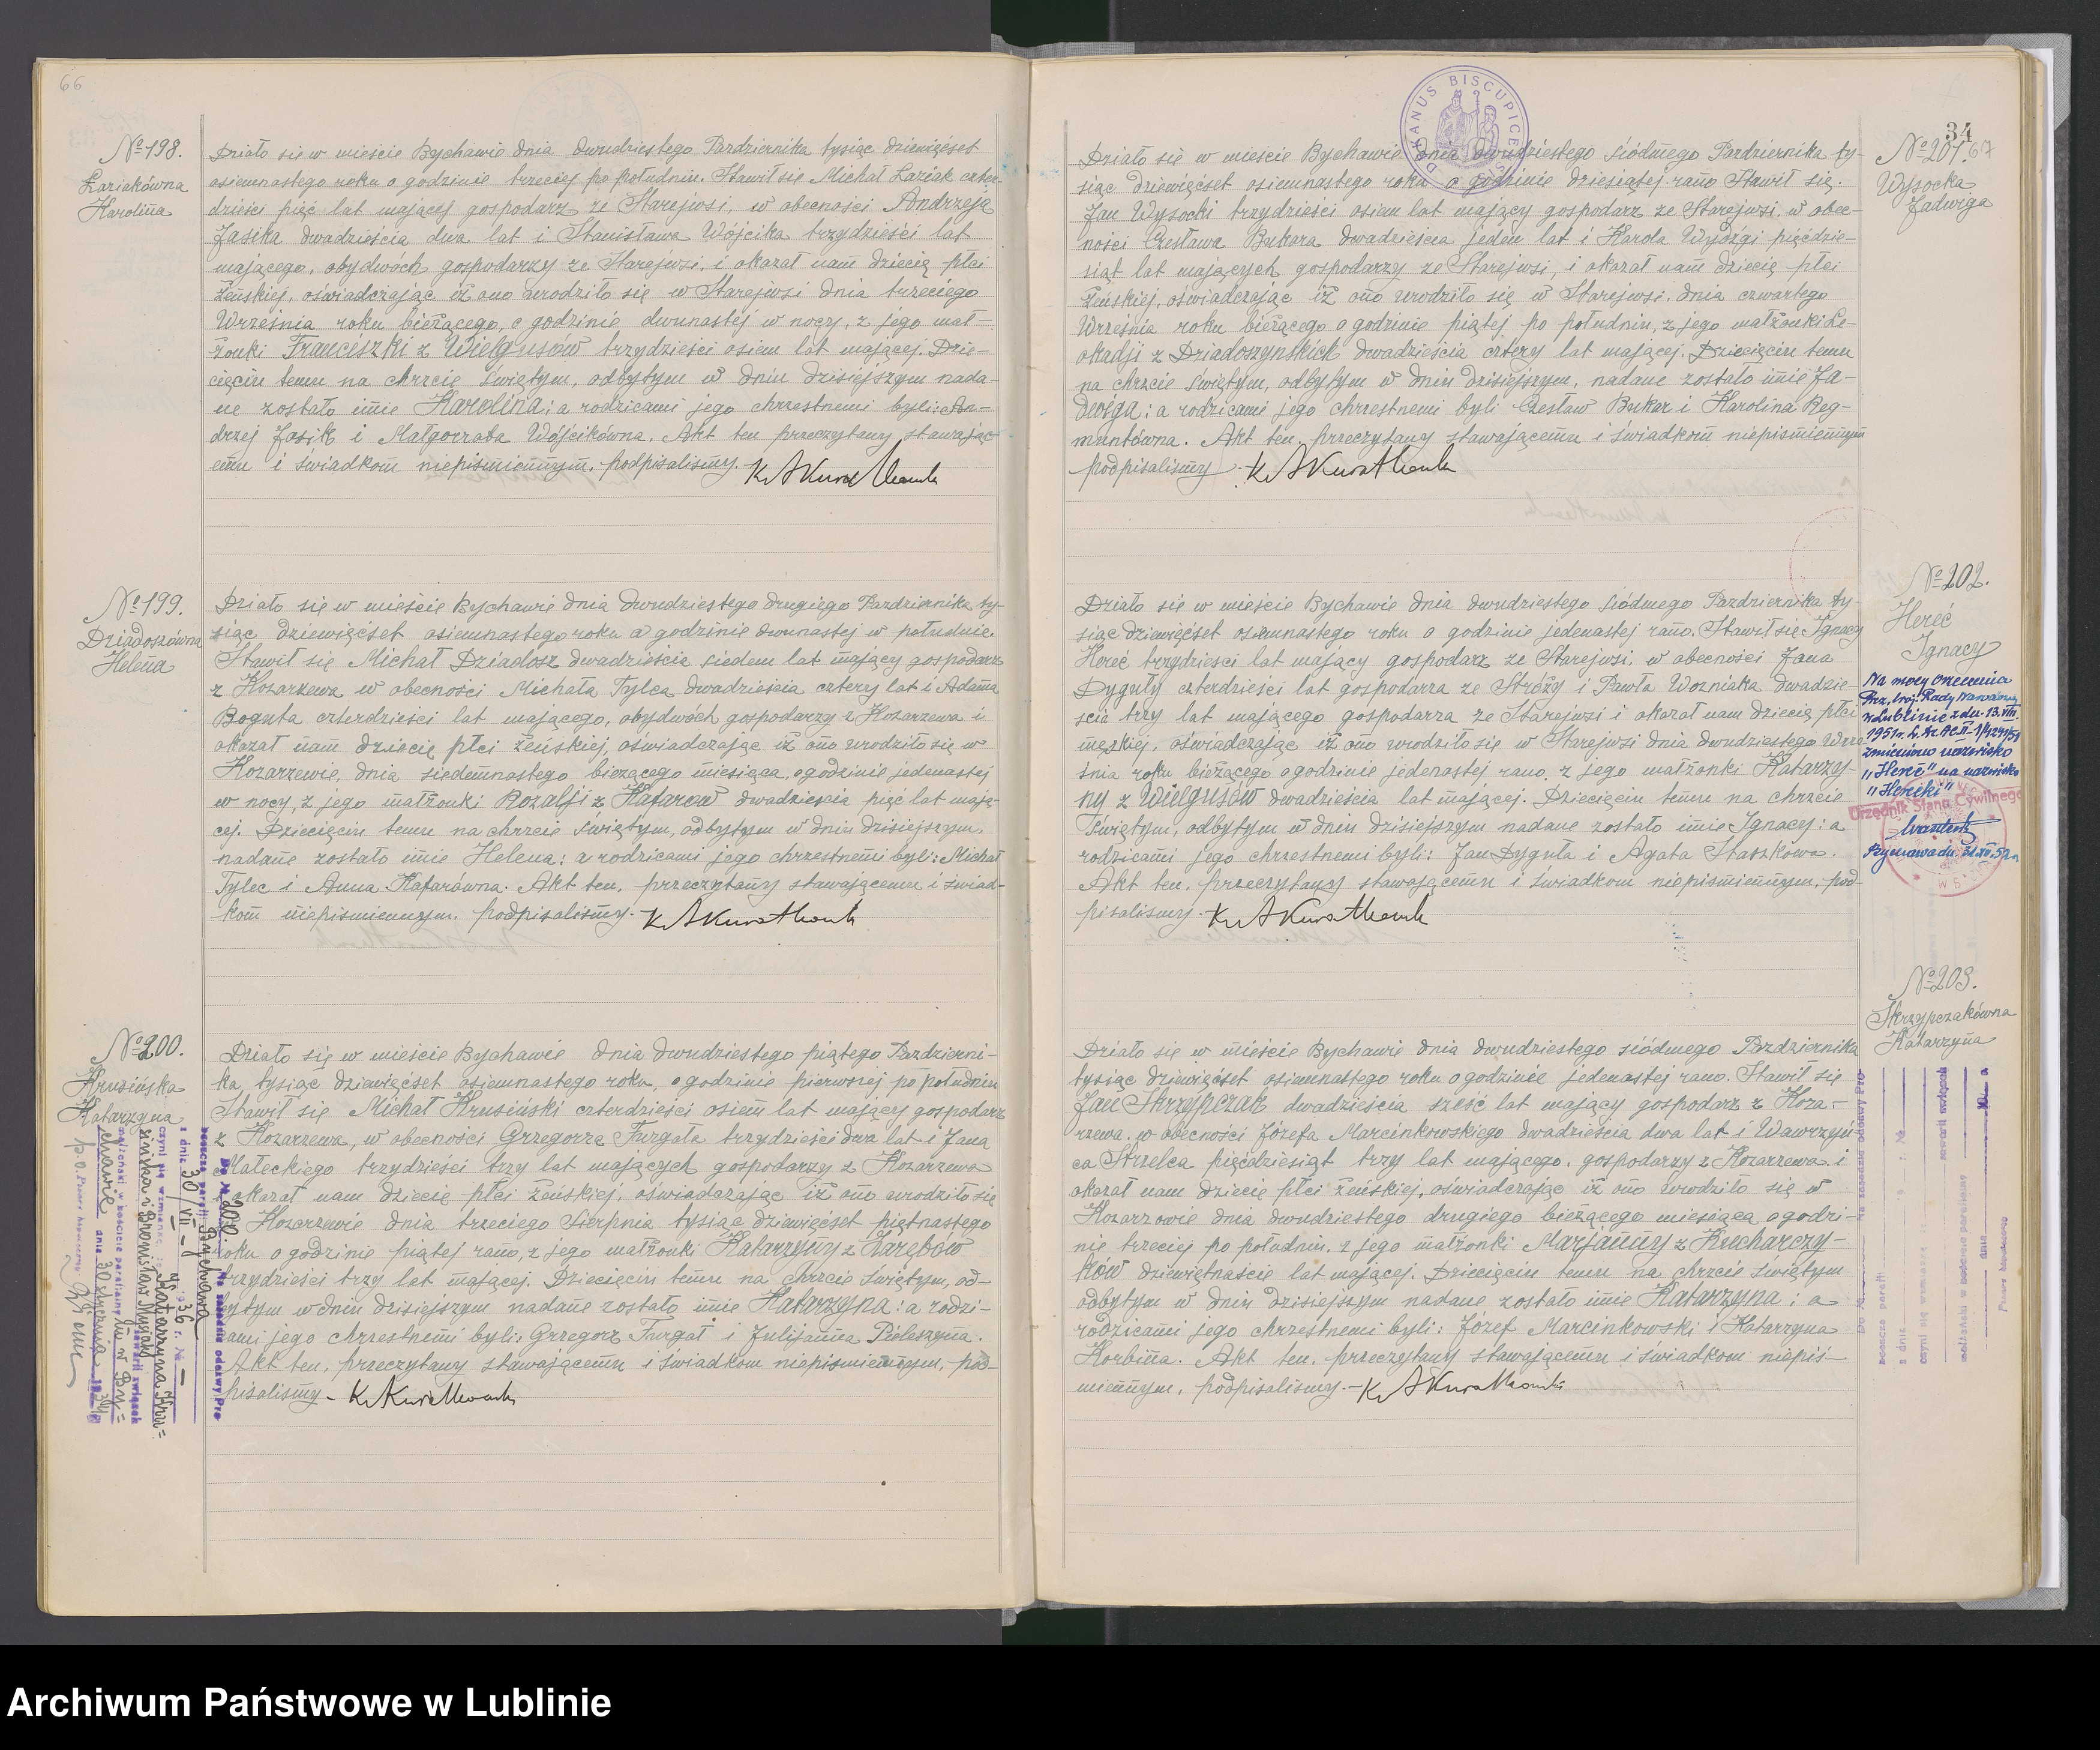 66
№ 198.
Łaziakówna
Karolina
Działo się w mieście Bychawie dnia dwudziestego Pazdziernika tysiąc dziewięćset
osiemnastego roku o godzinie trzeciej po południu. Stawił się Michał Łaziak czter-
dzieści pięć lat mający gospodarz ze Starejwsi, w obecności Andrzeja
Jasika dwadzieścia dwa lat i Stanisława Wójcika trzydzieści lat
mającego, obydwóch gospodarzy ze Starejwsi, i okazał nam dziecię płci
żeńskiej, oświadczając iż ono urodziło się w Starejwsi dnia trzeciego
Września roku bieżącego, o godzinie dwunastej w nocy, z jego mał-
żonki Franciszki z Wielgusów trzydzieści osiem lat mającej. Dzie-
cięciu temu na chrzcie świętym, odbytym w dniu dzisiejszym nada-
ne zostało imie Karolina; a rodzicami jego chrzestnemi byli: An-
drzej Jasik i Małgorzata Wójcikówna. Akt ten przeczytany stawając-
emu i świadkom niepiśmiennym, podpisaliśmy.
№ 199.
Dziadoszówna
Helena
Działo się w mieście Bychawie dnia dwudziestego drugiego Pazdziernika ty-
siąc dziewięćset osiemnastego roku o godzinie dwunastej w południe.
Stawił się Michał Dziadosz dwadzieścia siedem lat mający gospodarz
z Kozarzewa w obecności Michała Tylca dwadzieścia cztery lat i Adama
Boguta czterdzieści lat mającego, obydwóch gospodarzy z Kozarzewa i
okazał nam dziecię płci żeńskiej, oświadczając iż ono urodziło się w
Kozarzewie, dnia siedemnastego bieżącego miesiąca, o godzinie jedenastej
w nocy, z jego małżonki Rozalji z Kafarów dwadzieścia pięć lat mają-
cej. Dziecięciu temu na chrzcie świętym, odbytym w dniu dzisiejszym,
nadane zostało imie Helena; a rodzicami jego chrzestnemi byli: Michał
Tylec i Anna Kafarówna. Akt ten, przeczytany stawającemu i świad-
kom niepiśmiennym, podpisaliśmy.
№ 200.
Krusińska
Katarzyna
Działo się w mieście Bychawie dnia dwudziestego piątego Pazdzierni-
ka, tysiąc dziewięćset osiemnastego roku, o godzinie pierwszej po południu
Stawił się Michał Krusiński czterdzieści osiem lat mający gospodarz
z Kozarzewa, w obecności Grzegorza Furgała trzydzieści dwa lat i Jana
Małeckiego trzydzieści trzy lat mających gospodarzy z Kozarzewa
okazał nam dziecię płci żeńskiej, oświadczając iż ono urodziło się
Kozarzewie dnia trzeciego Sierpnia tysiąc dziewięćset piętnastego
roku o godzinie piątej rano, z jego małżonki Katarzyny z Zarębów
trzydzieści trzy lat mającej. Dziecięciu temu na chrzcie świętym, od-
bytym w dniu dzisiejszym nadane zostało imie Katarzyna; a rodzi-
cami jego chrzestnemi byli: Grzegorz Furgał i Julijanna Pieleszyna.
Akt ten, przeczytany stawającemu i świadkom niepiśmiennym, pod-
pisaliśmy
Do № 200. Na zasadzie odezwy Pro-
boszcza parafji Bychawa
z dnia 30/VII 1936 r. №
czyni się wzmiankę, iż Katarzyna Kru-
sińska i Bronisław zawarli związek
małżeński w kościele parafialnym w By-
chawie dnia 30 stycznia
DEKANUS BISCUPICE
34
67
№ 201.
Wysocka
Jadwiga
Działo się w mieście Bychawie dnia dwudziestego siódmego Pazdziernika ty-
siąc dziewięćset osiemnastego roku o godzinie dziesiątej rano Stawił się.
Jan Wysocki trzydzieści osiem lat mający gospodarz ze Starejwsi, w obec-
ności Czesława Bukara dwadzieścia jeden lat i Karola Wyjózgi pięćdzie-
siąt lat mających gospodarzy ze Starejwsi, i okazał nam dziecię płci
żeńskiej, oświadczając iż ono urodziło się w Starejwsi, dnia czwartego
Września roku bieżącego o godzinie piątej po południu, z jego małżonki Le-
okadji z Dziadoszynskich dwadzieścia cztery lat mającej. Dziecięciu temu
na chrzcie świętym, odbytym w dniu dzisiejszym, nadane zostało imie Ja-
dwiga; a rodzicami jego chrzestnemi byli Czesław Bukar i Karolina Reg-
muntówna. Akt ten, przeczytany stawającemu i świadkom niepiśmiennym
podpisaliśmy
№ 202.
Hereć
Ignacy
Działo się w mieście Bychawie dnia dwudziestego siódmego Pazdziernika ty-
siąc dziewięćset osiemnastego roku o godzinie jedenastej rano. Stawił się Ignacy
Hereć trzydzieści lat mający gospodarz ze Starejwsi, w obecności Jana
Dyguły czterdzieści lat gospodarza ze Stróży i Pawła Wozniaka dwadzie-
ścia trzy lat mającego gospodarza ze Starejwsi i okazał nam dziecię płci
męskiej, oświadczając iż ono urodziło się w Starejwsi dnia dwudziestego Wrze-
śnia roku bieżącego o godzinie jedenastej rano, z jego małżonki Katarzy-
ny z Wielgusów dwadzieścia lat mającej. Dziecięciu temu na chrzcie
świętym, odbytym w dniu dzisiejszym nadane zostało imie Ignacy; a
rodzicami jego chrzestnemi byli: Jan Dyguła i Agata Staszkowa.
Akt ten, przeczytany stawającemu i świadkom niepiśmiennym, pod-
pisaliśmy.
Na mocy orzeczenia
Prez. Woj. Rady Narodowej
w Lublinie z dn. 13.VIII.
1951 r.
zmieniono nazwisko
"Hereć" na nazwisko
"Herecki"
Urzędnik Stanu Cywilnego
№ 203.
Skrzypczakówna
Katarzyna
Działo się w mieście Bychawie dnia dwudziestego siódmego Pazdziernika
tysiąc dziewięćset osiemnastego roku o godzinie jedenastej rano. Stawił się
Jan Skrzypczak dwadzieścia sześć lat mający gospodarz z Koza-
rzewa, w obecności Józefa Marcinkowskiego dwadzieścia dwa lat i Wawrzyń-
ca Strzelca pięćdziesiąt trzy lat mającego, gospodarzy z Kozarzewa, i
okazał nam dziecię płci żeńskiej, oświadczając iż ono urodziło się w
Kozarzowie dnia dwudziestego drugiego bieżącego miesiąca o godzi-
nie trzeciej po południu, z jego małżonki Marjanny z Kucharczy-
ków dziewiętnaście lat mającej. Dziecięciu temu na chrzcie świętym
odbytym w dniu dzisiejszym nadane zostało imie Katarzyna; a
rodzicami jego chrzestnemi byli: Józef Marcinkowski i Katarzyna
Korbina. Akt ten, przeczytany stawającemu i świadkom niepiś-
miennym, podpisaliśmy.
Do № na zasadzie odezwy Pro-
boszcza parafji
z dnia 19 r. №
czyni się wzmiankę
zawarli związek
małżeński w kościele parafialnym
dnia
Archiwum Państwowe w Lublinie